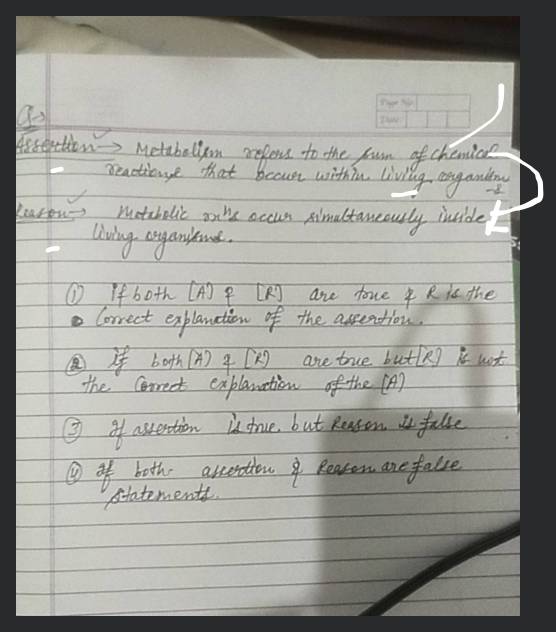 Page No.
Date
Q→
Assertion → Metabolism refers to the sum of chemical
reactions that occur within living organisms
Reason → Metabolic rxns occur simultaneously inside
living organisms.
① If both [A] & [R] are true & R is the
Correct explanation of the assertion.
② if both [A] & [R] are true but [R] is not
the Correct explanation of the [A]
③ If assertion is true but Reason is false
④ If both assertion & Reason are false
statements.